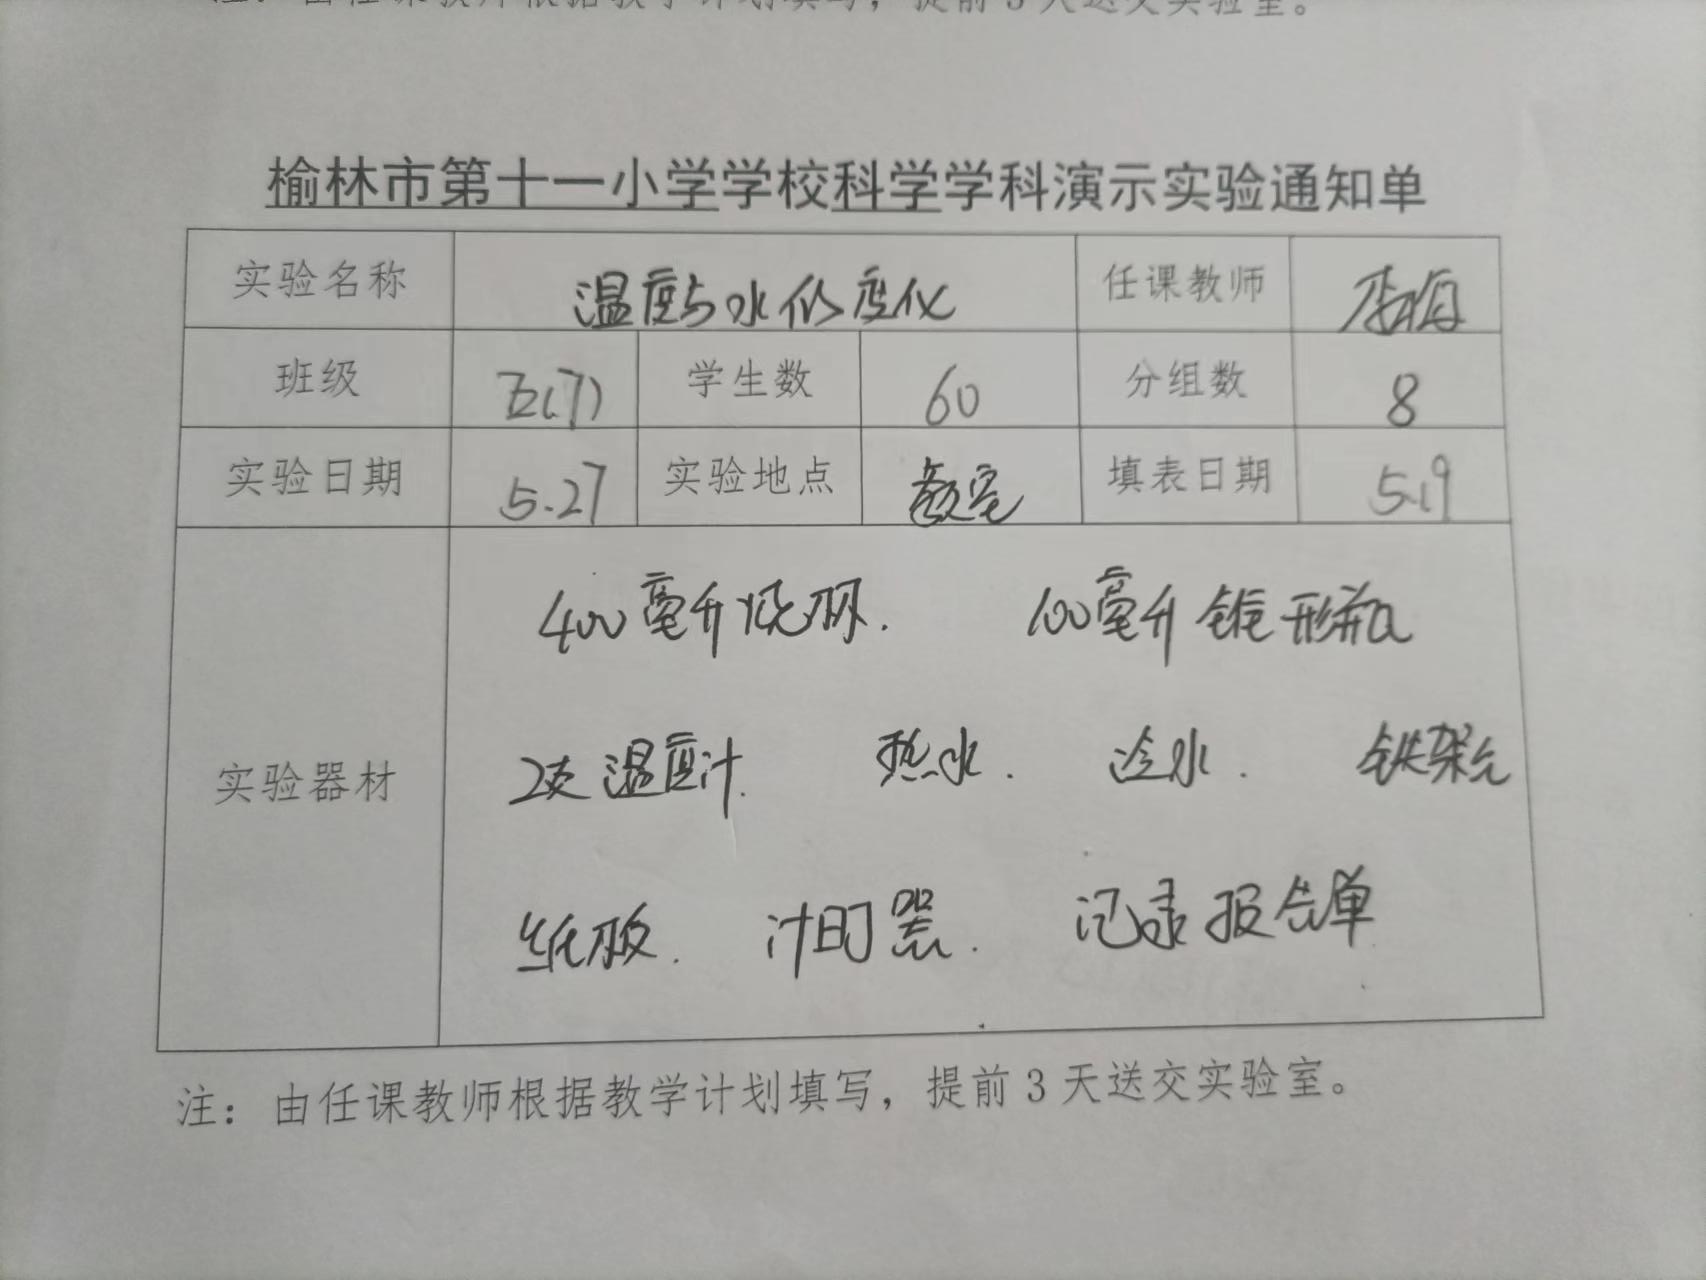 注：由任课教师根据教学计划填写，提前3天送交实验室。
榆林市第十一小学学校科学学科演示实验通知单
实验名称 温度与水的变化 任课教师
班级 五(7) 学生数 60 分组数 8
实验日期 5.27 实验地点 教室 填表日期 5.19
400毫升烧杯. 100毫升锥形瓶
实验器材 2支温度计. 热水. 冷水. 铁架台
纸板. 计时器. 记录报告单
注：由任课教师根据教学计划填写，提前3天送交实验室。